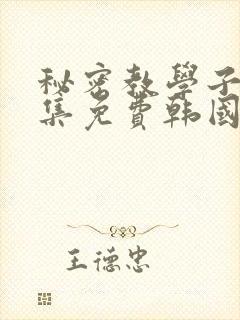 秘密教學子
集免費韩國
王德忠